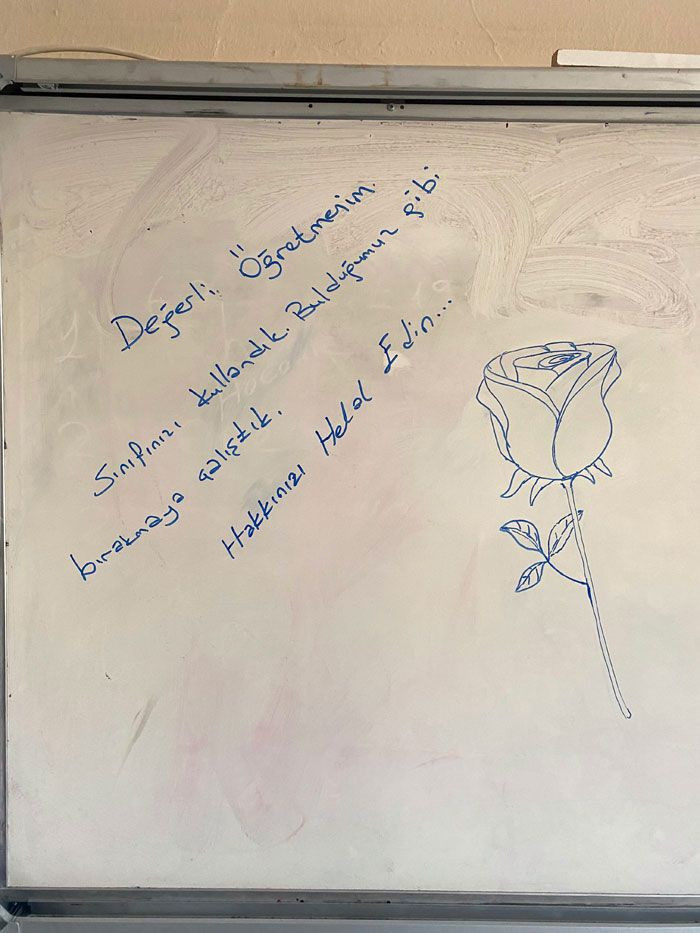 Değerli Öğretmenim.
Sınıfınızı kullandık. Bulduğumuz gibi
bırakmaya çalıştık.
Hakkınızı Helal Edin...